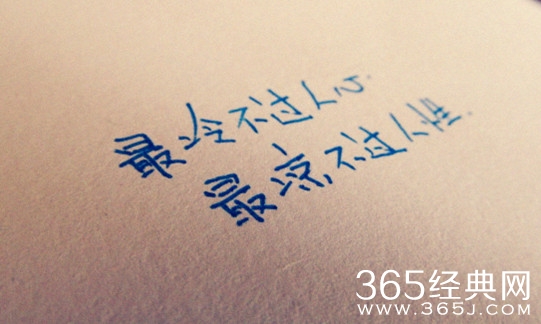 最冷不过人心.
最凉不过人性.
365经典网
www.365j.com